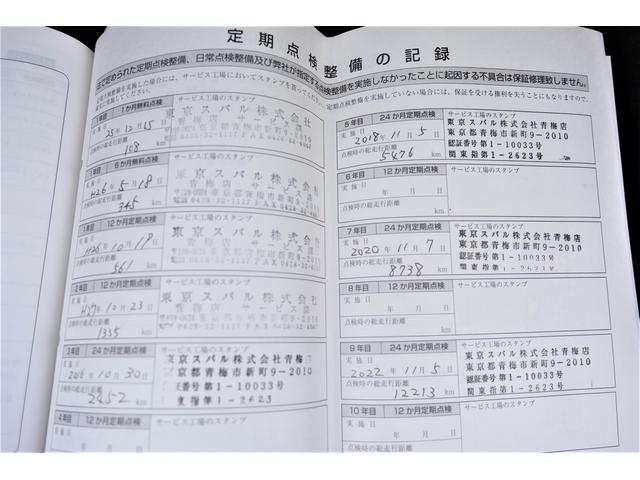 定期点検整備の記録
法で定められた定期点検整備、日常点検整備及び弊社が指定する点検整備を実施しなかったことに起因する不具合は保証修理致しません。
1年目 1か月無料点検
サービス工場のスタンプ
実施日
25年12月15日
点検時の総走行距離
108 km
東京スバル株式会社
1年目 6か月無料点検
サービス工場のスタンプ
実施日
H26年5月18日
点検時の総走行距離
345 km
東京スバル株式会社
青梅店 サービス課
1年目 12か月定期点検
サービス工場のスタンプ
実施日
H26年10月18日
点検時の総走行距離
561 km
東京スバル株式会社
青梅店 サービス課
2年目 12か月定期点検
サービス工場のスタンプ
実施日
H27年10月23日
点検時の総走行距離
1335 km
東京スバル株式会社
青梅店 サービス課
3年目 24か月定期点検
サービス工場のスタンプ
実施日
2016年10月30日
点検時の総走行距離
2452 km
東京スバル株式会社青梅店
東京都青梅市新町9-2010
認証番号第1-10033号
関東指第1-2623号
4年目 12か月定期点検
サービス工場のスタンプ
年 月 日
5年目 24か月定期点検
サービス工場のスタンプ
実施日
2018年11月5日
点検時の総走行距離
5476 km
東京スバル株式会社青梅店
東京都青梅市新町9-2010
認証番号第1-10033号
関東指第1-2623号
6年目 12か月定期点検
サービス工場のスタンプ
実施日
年 月 日
点検時の総走行距離
km
7年目 24か月定期点検
サービス工場のスタンプ
実施日
2020年11月7日
点検時の総走行距離
8738 km
東京スバル株式会社青梅店
東京都青梅市新町9-2010
認証番号第1-10033号
関東指第1-2623号
8年目 12か月定期点検
サービス工場のスタンプ
実施日
年 月 日
点検時の総走行距離
km
9年目 24か月定期点検
サービス工場のスタンプ
実施日
2022年11月5日
点検時の総走行距離
12213 km
東京スバル株式会社青梅店
東京都青梅市新町9-2010
認証番号第1-10033号
関東指第1-2623号
10年目 12か月定期点検
サービス工場のスタンプ
実施日
年 月 日
点検時の総走行距離
km